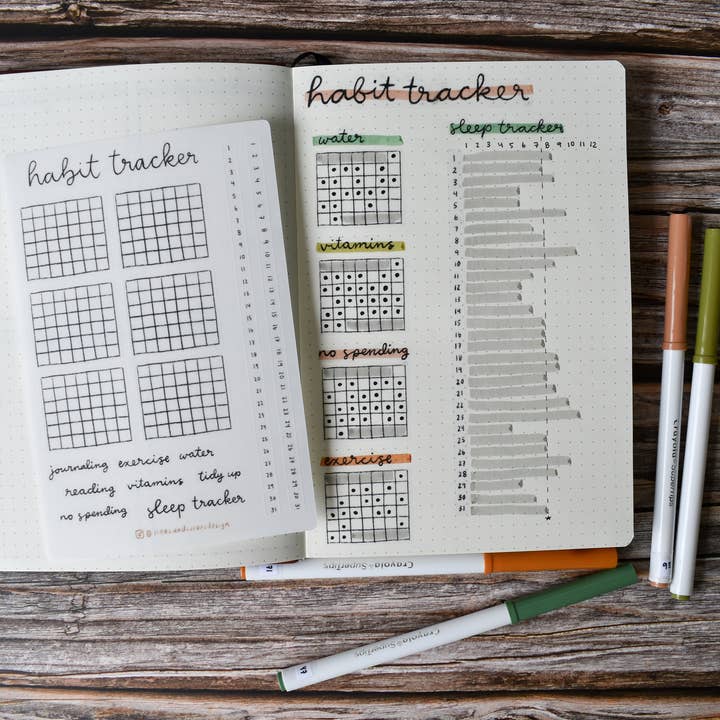 habit tracker
journaling exercise water
reading vitamins tidy up
no spending sleep tracker
habit tracker
water
vitamins
no spending
exercise
sleep tracker
1 2 3 4 5 6 7 8 9 10 11 12
1
2
3
4
5
6
7
8
9
10
11
12
13
14
15
16
17
18
19
20
21
22
23
24
25
26
27
28
29
30
31
Crayola SuperTips
Crayola SuperTips
Crayola SuperTips